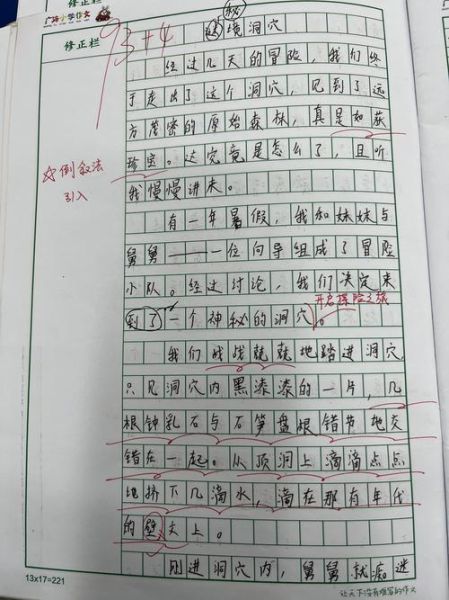 广培小学作文
修正栏
93+4
秘
秘境洞穴
经过几天的冒险，我们终
于走出了这个洞穴，见到了远
方茂密的原始森林，真是如获
珍宝。这究竟是怎么了，且听
我慢慢进来。
倒叙法
引入
有一年暑假，我和妹妹与
舅舅——一位向导组成了冒险
小队。经过讨论，我们决定来
开启探险之旅
到了一个神秘的洞穴。
我们战战兢兢地踏进洞穴，
只见洞穴内黑漆漆的一片，几
根钟乳石与石笋盘根错节地交
错在一起。从顶洞上滴滴点点
地挤下几滴水，滴在那有年代
的壁头上。
刚进洞穴内，舅舅就痴迷
13x17=221
让天下没有难写的作文